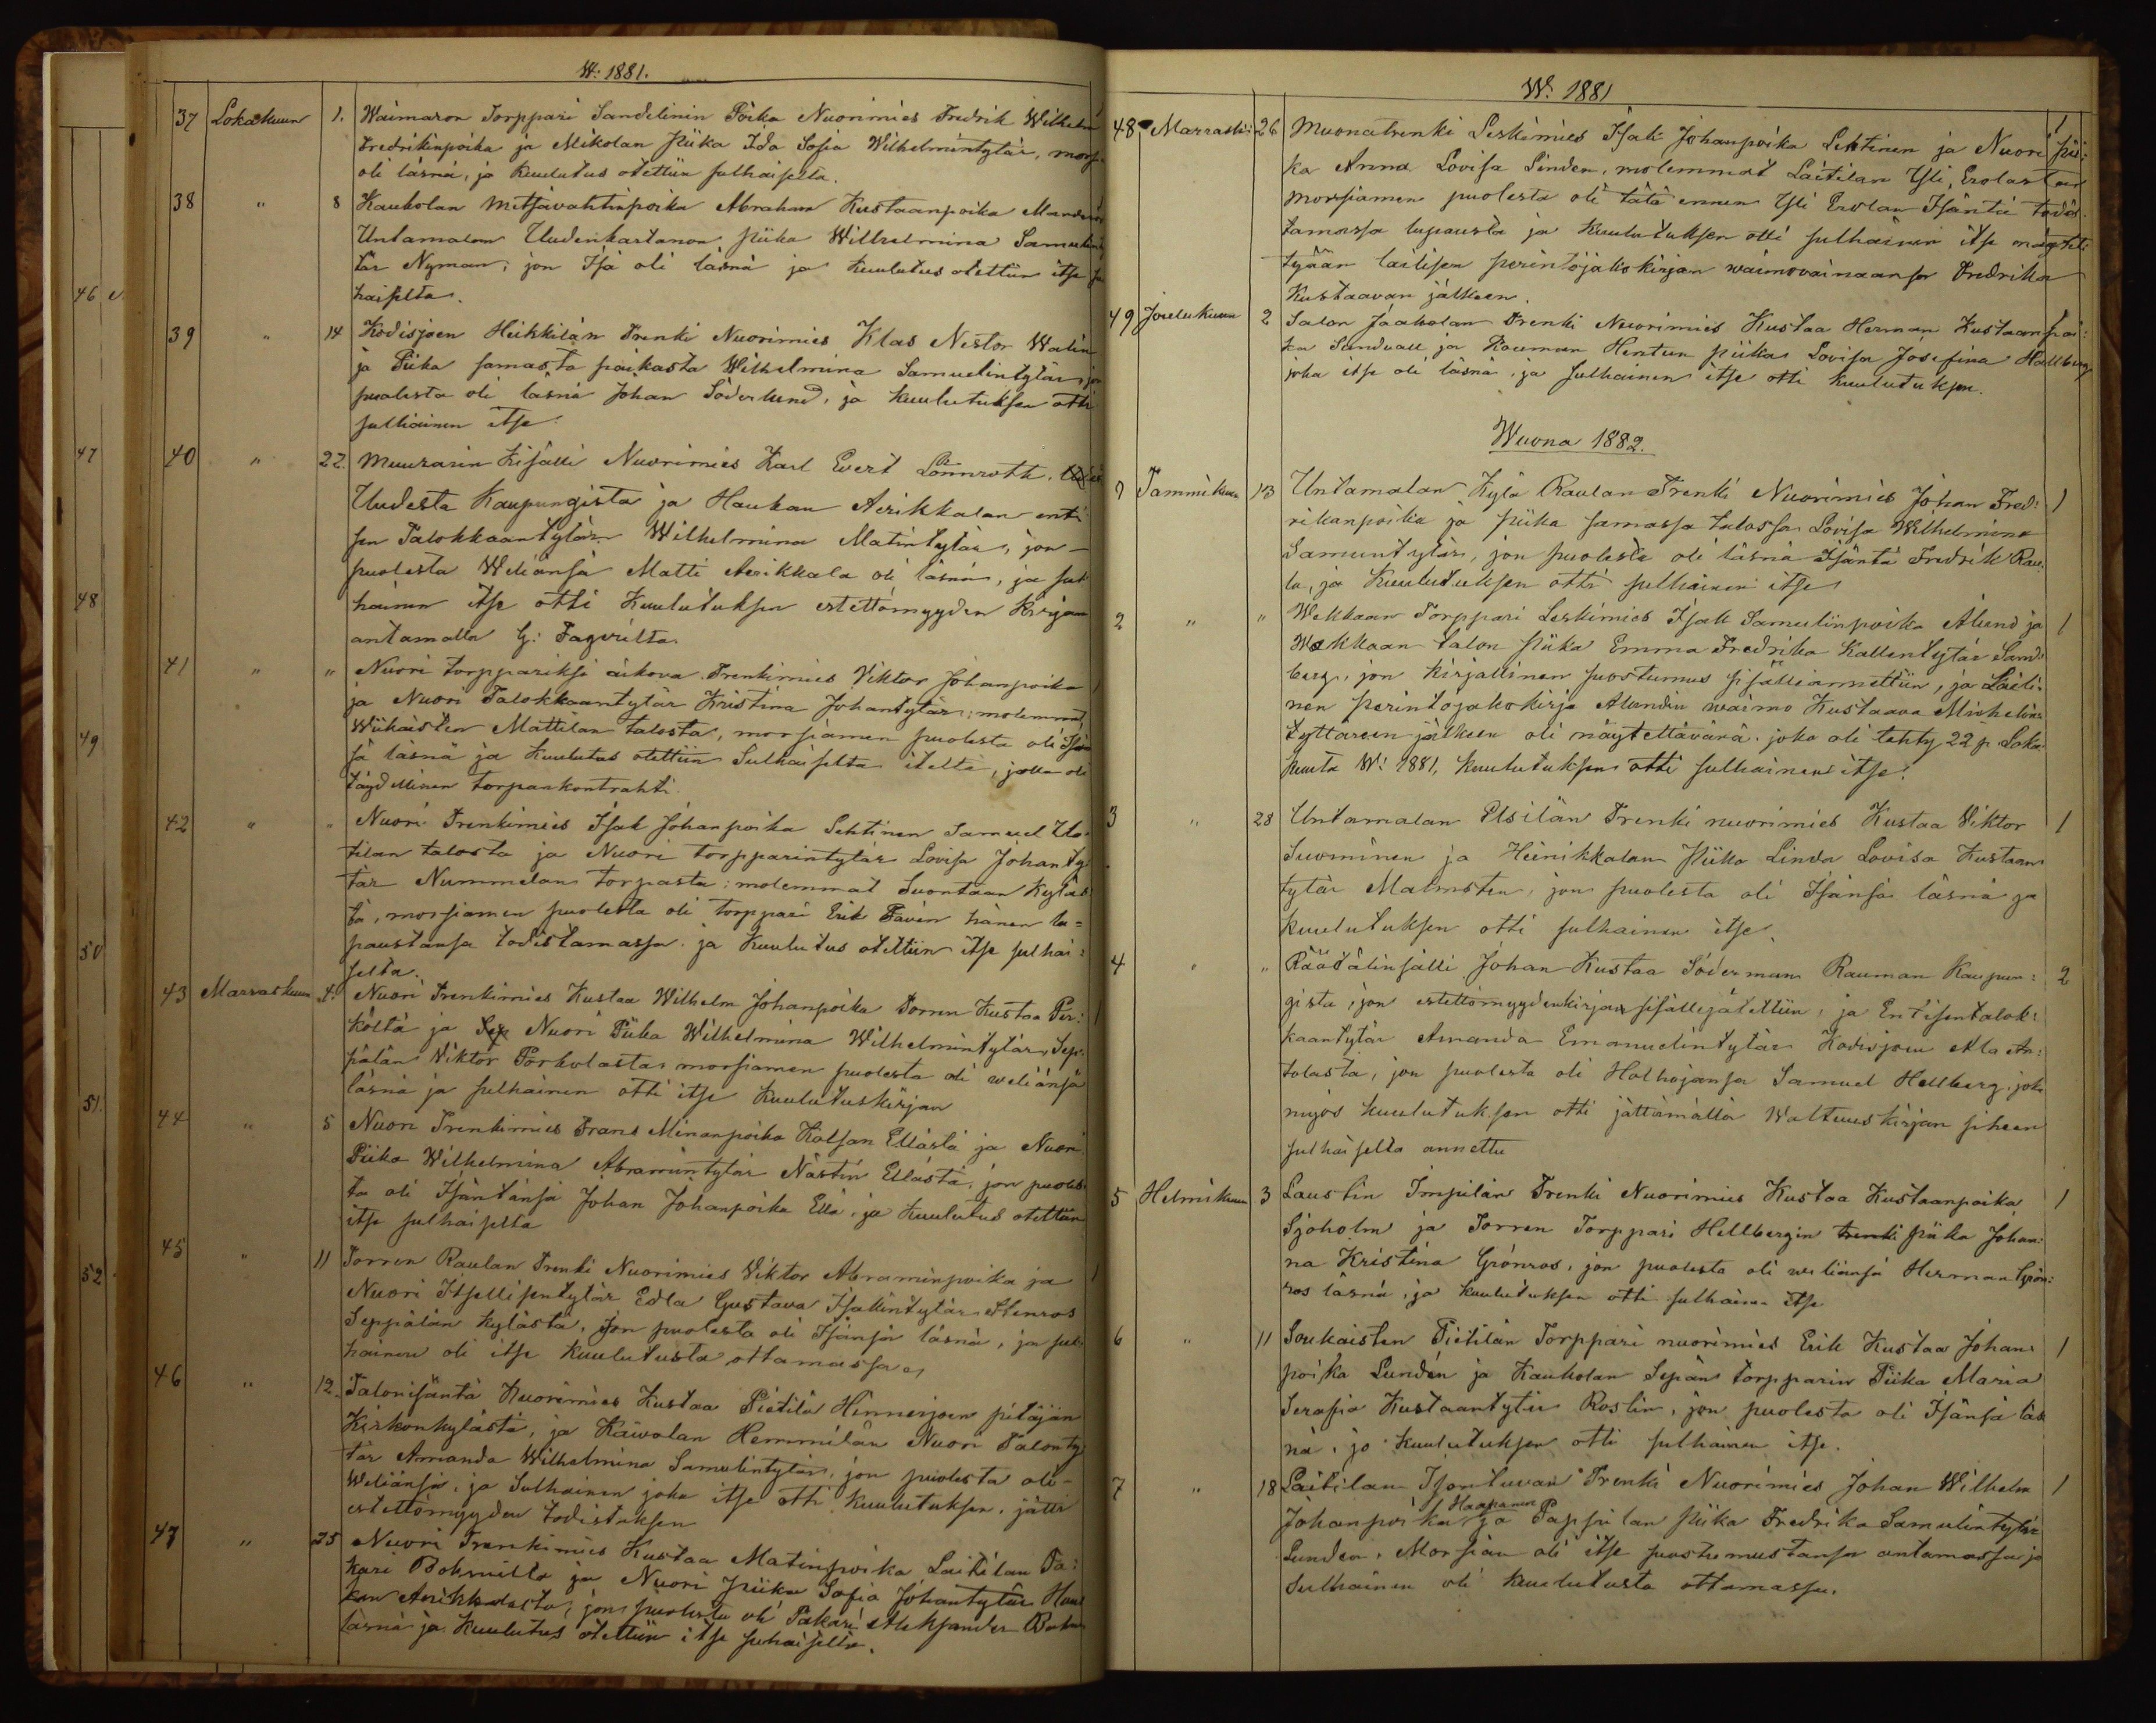 W: 1881.
37 Lokakuun 1. Waimaron Torppari Sandelinin Poika Nuorimies Fredrik Wilhelm
Fredrikinpoika ja Mikolan Piika Ida Sofia Wilhelmintytär, mors
oli läsnä, ja Kuulutus otettiin sulhaiselta.
38 " 8 Kaukolan Metsävahtinpoika Abraham Kustaanpoika
Untamalan Uudenkartanon Piika Wilhelmina Samuelin
tär Nyman, jon Isä oli läsnä ja kuulutus otettiin itse
haiselta.
39 " 14 Kodisjoen Heikkilän Trenki Nuorimies Klas Nestor Walin
ja Piika samasta paikasta Wilhelmina Samuelintytär, jon
puolesta oli läsnä Johan Söderlund, ja kuulutuksen otti
sulhainen itse.
40 " 22. Muurarin Kisälli Nuorimies Karl Evert Lönnroth,
Uudesta Kaupungista ja Haukan Aerikkalan enti
sen Talokkaantytär Wilhelmina Matintytär, jon
puolesta Weliänsä Matti Aerikkala oli läsnä, ja sul
hainen itse otti Kuulutuksen estettömyyden Kirjan
antamalla G: Fagerilta.
41 " " Nuori torppariksi aikova Trenkimies Viktor Johanpoika
ja Nuori Talokkaantytär Kristina Johantytär; molemmat
Wiikaisten Mattilan talosta, morsiamen puolesta oli Isän
sä läsnä ja Kuulutus otettiin Sulhaiselta itselta, jolla oli
täydellinen torpankontrahti.
42 " " Nuori Trenkimies Isak Johanpoika Lehtinen Samuel Uo
tilan talosta ja Nuori torpparintytär Lovisa Johanty
tär Nummelan torpasta; molemmat Suontaan Kyläs
tä, morsiamen puolesta oli torppari Erik Favén hänen lu=
paustansa todistamassa. ja Kuulutus otettiin itse sulhai:
selta.
43 Marraskuun 4. Nuori Trenkimies Kustaa Wilhelm Johanpoika Torren Kustaa Per:
költä ja Nuori Piika Wilhelmina Wilhelmintytär, Sep:
pälän Viktor Porkolasta morsiamen puolesta oli weliänsä
läsnä ja sulhainen otti itse Kuulutuskirjan
44 " 5 Nuori Trenkimies Frans Minanpoika Kalsan Ellästä ja Nuori
Piika Wilhelmina Abramintytär Nästin Ellästä, jon puoles
ta oli Isäntänsä Johan Johanpoika Ellä, ja Kuulutus otettiin
itse sulhaiselta
45 " 11 Torren Raulan Trenki Nuorimies Viktor Abraminpoika ja
Nuori Itsellisentytär Edla Gustava Isakintytär Stenros
Seppälän Kylästä, jon puolesta oli Isänsä läsnä, ja sul
hainen oli itse Kuulutusta ottamassa,
46 " 12. Talonisäntä Nuorimies Kustaa Pietilä Hinnerjoen pitäjän
Kirkonkylästä, ja Käivolan Hemmilän Nuori Talonty
tär Amanda Wilhelmina Samulintytär, jon puolesta oli
Weliänsä, ja Sulhainen joka itse otti kuulutuksen, jätti
estettömyyden todistuksen
47 " 25 Nuori Trenkimies Kustaa Matinpoika Laitilan Pa:
kari Bohmilta ja Nuori Piika Sofia Johantytär Hau
kan Aerikkalasta, jon puolesta oli Pakari Aleksander
läsnä ja Kuulutus otettiin itse sulhaiselta.
46
47
48
49
50
51.
52
W: 1881
48 Marrask: 26 Muonatrenki Leskimies Isak Johanpoika Lehtinen ja Nuori pii:
ka Anna Lovisa Linden, molemmat Laitilan Yli Erolasta
morsiamen puolesta oli tätä ennen Yli Erolan Isäntä todis:
tamassa lupausta ja Kuulutuksen otti sulhainen itse näytet
tyään laillisen perintöjakokirjan waimovainaansa Fredrika
Kustaavan jälkeen.
49 Joulukuun 2 Salon Jaakolan Trenki Nuorimies Kustaa Herman Kustaanpoi:
ka Sundvall ja Rauman Hentun piika Lovisa Josefina Hallberg
joka itse oli läsnä, ja sulhainen itse otti Kuulutuksen.
Wuona 1882.
1 Tammikuun 13 Untamalan Kylä Raulan Trenki Nuorimies Johan Fred: 1
rikanpoika ja piika samassa talossa Lovisa Wilhelmina
Samuntytär, jon puolesta oli läsnä Isäntä Fredrik Rau:
la, ja Kuulutuksen otti sulhainen itse
2 " " Wekkaan Torppari Leskimies Isak Samulinpoika Ålund ja 1
Wekkaan talon Piika Emma Fredrika Kallentytär Sand:
berg, jon kirjallinen suostumus sisälleannettiin, ja Laili:
nen perintojakokirja Alundin waimo Kustaava Mickelin
tyttareen jälkeen oli näytettävänä. joka oli tehty 22 p. Loka:
kuuta W: 1881, kuulutuksen otti sulhainen itse.
3 " 28 Untamalan Elsilän Trenki nuorimies Kustaa Viktor 1
Suominen ja Heinikkalan Piika Linda Lovisa Kustaan
tytär Malmsten, jon puolesta oli Isänsä läsnä ja
kuulutuksen otti sulhainen itse.
4 " " Räätälinsälli Johan Kustaa Söderman Rauman Kaupun: 2
gista, jon estettömyydenkirjan sisällejätettiin, ja Entisentalok:
kaantytär Amanda Emanuelintytär Kodisjoen Ala An:
tolasta, jon puolesta oli Holhojansa Samuel Hellberg, joka
myös kuulutuksen otti jättämällä Waltuuskirjan siheen
sulhaiselta annettu
5 Helmikuun 3 Laustin Impilän Trenki Nuorimies Kustaa Kustaanpoika 1
Sjöholm ja Torren Torppari Hellbergin trenki piika Johan:
na Kristina Grönros, jon puolesta oli weliänsä Herman Grön:
ros läsnä, ja kuulutuksen otti sulhainen itse
6 " 11 Soukaisten Pietilän Torppari nuorimies Erik Kustaa Johan 1
poika Lundén ja Kaukolan Sepän torpparin Piika Maria
Serafia Kustaantytär Roslin, jon puolesta oli Isänsä läs
nä, ja kuulutuksen otti sulhainen itse.
7 " 18 Laitilan Isontuvan Trenki Nuorimies Johan Wilhelm 1
Haapanen
Johanpoika ja Pappilan Piika Fredrika Samulintytär
Lunden, Morsian oli itse suostumustansa antamassa ja
Sulhainen oli kuulutusta ottamassa.